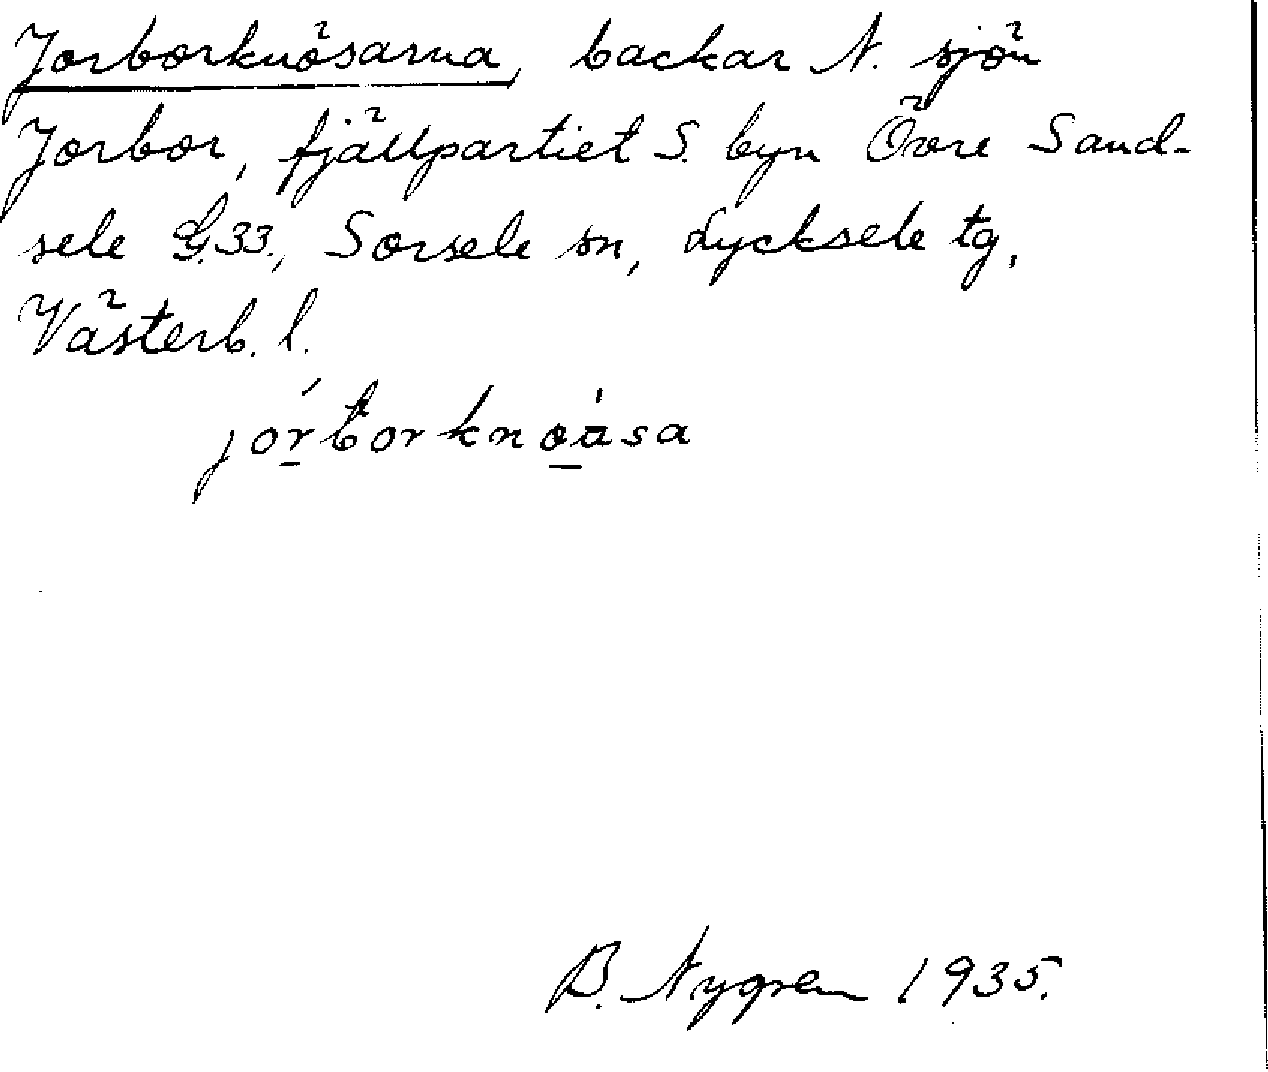 Jorborknösarna, backar N. sjön
Jorbor, fjällpartiet S. byn Övre Sand-
sele G.33., Sorsele sn, Lycksele tg,
Västerb. l.
jórborknoasa
B. Nygren 1935.